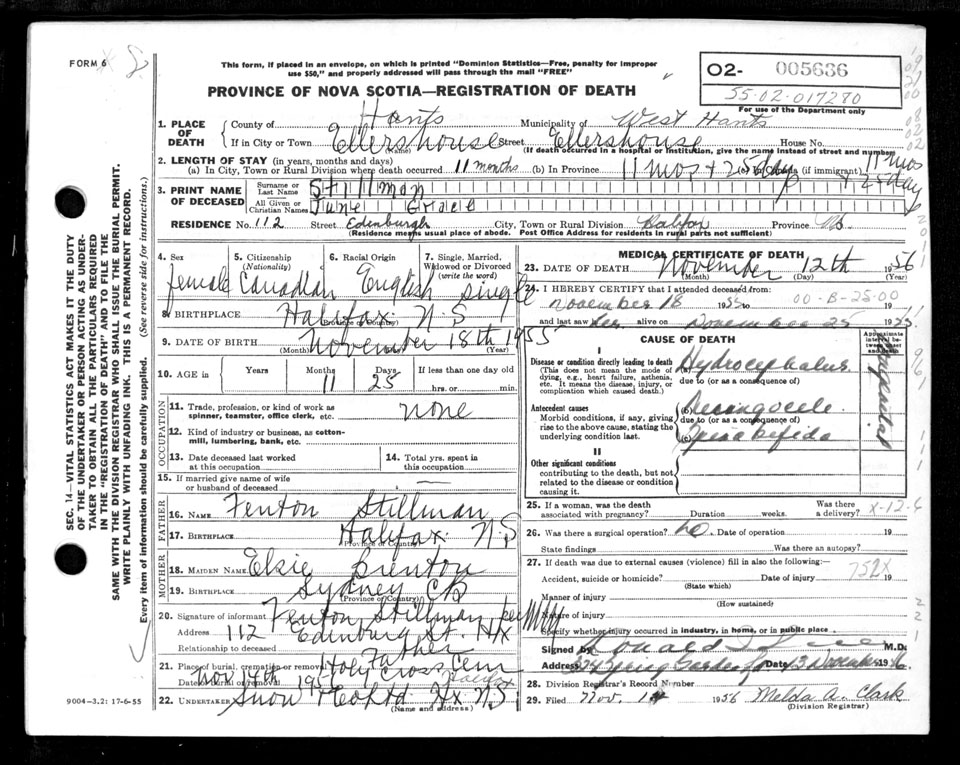 FORM 6
This form, if placed in an envelope, on which is printed "Dominion Statistics—Free, penalty for improper
use $50," and properly addressed will pass through the mail "FREE"
O2- 005636
55-02-017270
For use of the Department only
PROVINCE OF NOVA SCOTIA—REGISTRATION OF DEATH
1. PLACE OF DEATH County of Hants Municipality of West Hants
If in City or Town Ellershouse (Name) Street Ellershouse House No.
(If death occurred in a hospital or institution, give the name instead of street and number)
2. LENGTH OF STAY (in years, months and days)
(a) In City, Town or Rural Division where death occurred 11 months (b) In Province 11 mos + 25 days (c) In Canada (if immigrant) 11 mos + 25 days
3. PRINT NAME OF DECEASED Surname or Last Name Stillman
All Given or Christian Names June Grace
RESIDENCE No. 112 Street Edinburgh City, Town or Rural Division Halifax Province NS
(Residence means usual place of abode. Post Office Address for residents in rural parts not sufficient)
4. Sex female
5. Citizenship (Nationality) Canadian
6. Racial Origin English
7. Single, Married, Widowed or Divorced (write the word) single
8. BIRTHPLACE Halifax N.S (Province or Country)
9. DATE OF BIRTH November 18th 1955 (Month) (Year)
10. AGE in Years Months 11 Days 25 If less than one day old hrs. or min.
OCCUPATION
11. Trade, profession, or kind of work as spinner, teamster, office clerk, etc. none
12. Kind of industry or business, as cotton-mill, lumbering, bank, etc.
13. Date deceased last worked at this occupation
14. Total yrs. spent in this occupation
15. If married give name of wife or husband of deceased —
FATHER
16. NAME Fenton Stillman
17. BIRTHPLACE Halifax N.S (Province or Country)
MOTHER
18. MAIDEN NAME Elsie
19. BIRTHPLACE Sydney CB (Province or Country)
20. Signature of informant Fenton Stillman per
Address 112 Edinburg St. Hx
Relationship to deceased Father
21. Place of burial, cremation or removal Holy Cross Cem Halifax
Date of burial or removal Nov 14th 1956
22. UNDERTAKER Snow & Co Ltd Hx N.S
(Name and address)
9004—3.2: 17-6-55
MEDICAL CERTIFICATE OF DEATH
23. DATE OF DEATH November (Month) 12th (Day) 1956
24. I HEREBY CERTIFY that I attended deceased from:
November 18 1955 to 00-B-25-00
and last saw her alive on November 25 1955
CAUSE OF DEATH
Approximate interval between onset and death
I
Disease or condition directly leading to death
(This does not mean the mode of dying, e.g., heart failure, asthenia, etc. It means the disease, injury, or complication which caused death.)
(a) Hydrocephalus
due to (or as a consequence of)
Antecedent causes
Morbid conditions, if any, giving rise to the above cause, stating the underlying condition last.
(b)
due to (or as a consequence of)
(c) Spina bifida
II
Other significant conditions
contributing to the death, but not related to the disease or condition causing it.
25. If a woman, was the death associated with pregnancy? Duration weeks. Was there a delivery? X-12-6
26. Was there a surgical operation? no. Date of operation 19
State findings Was there an autopsy?
27. If death was due to external causes (violence) fill in also the following:—
Accident, suicide or homicide? (State which) Date of injury 19
752X
Manner of injury (How sustained)
Nature of injury
Specify whether injury occurred in industry, in home, or in public place
Signed by M.D.
Address Spring Garden Date 13 November 1956.
28. Division Registrar's Record Number
29. Filed Nov. 1956 Melda A. Clark
(Division Registrar)
SEC. 14—VITAL STATISTICS ACT MAKES IT THE DUTY
OF THE UNDERTAKER OR PERSON ACTING AS UNDER-
TAKER TO OBTAIN ALL THE PARTICULARS REQUIRED
IN THE "REGISTRATION OF DEATH" AND TO FILE THE
SAME WITH THE DIVISION REGISTRAR WHO SHALL ISSUE THE BURIAL PERMIT.
WRITE PLAINLY WITH UNFADING INK. THIS IS A PERMANENT RECORD.
Every item of information should be carefully supplied. (See reverse side for instructions.)